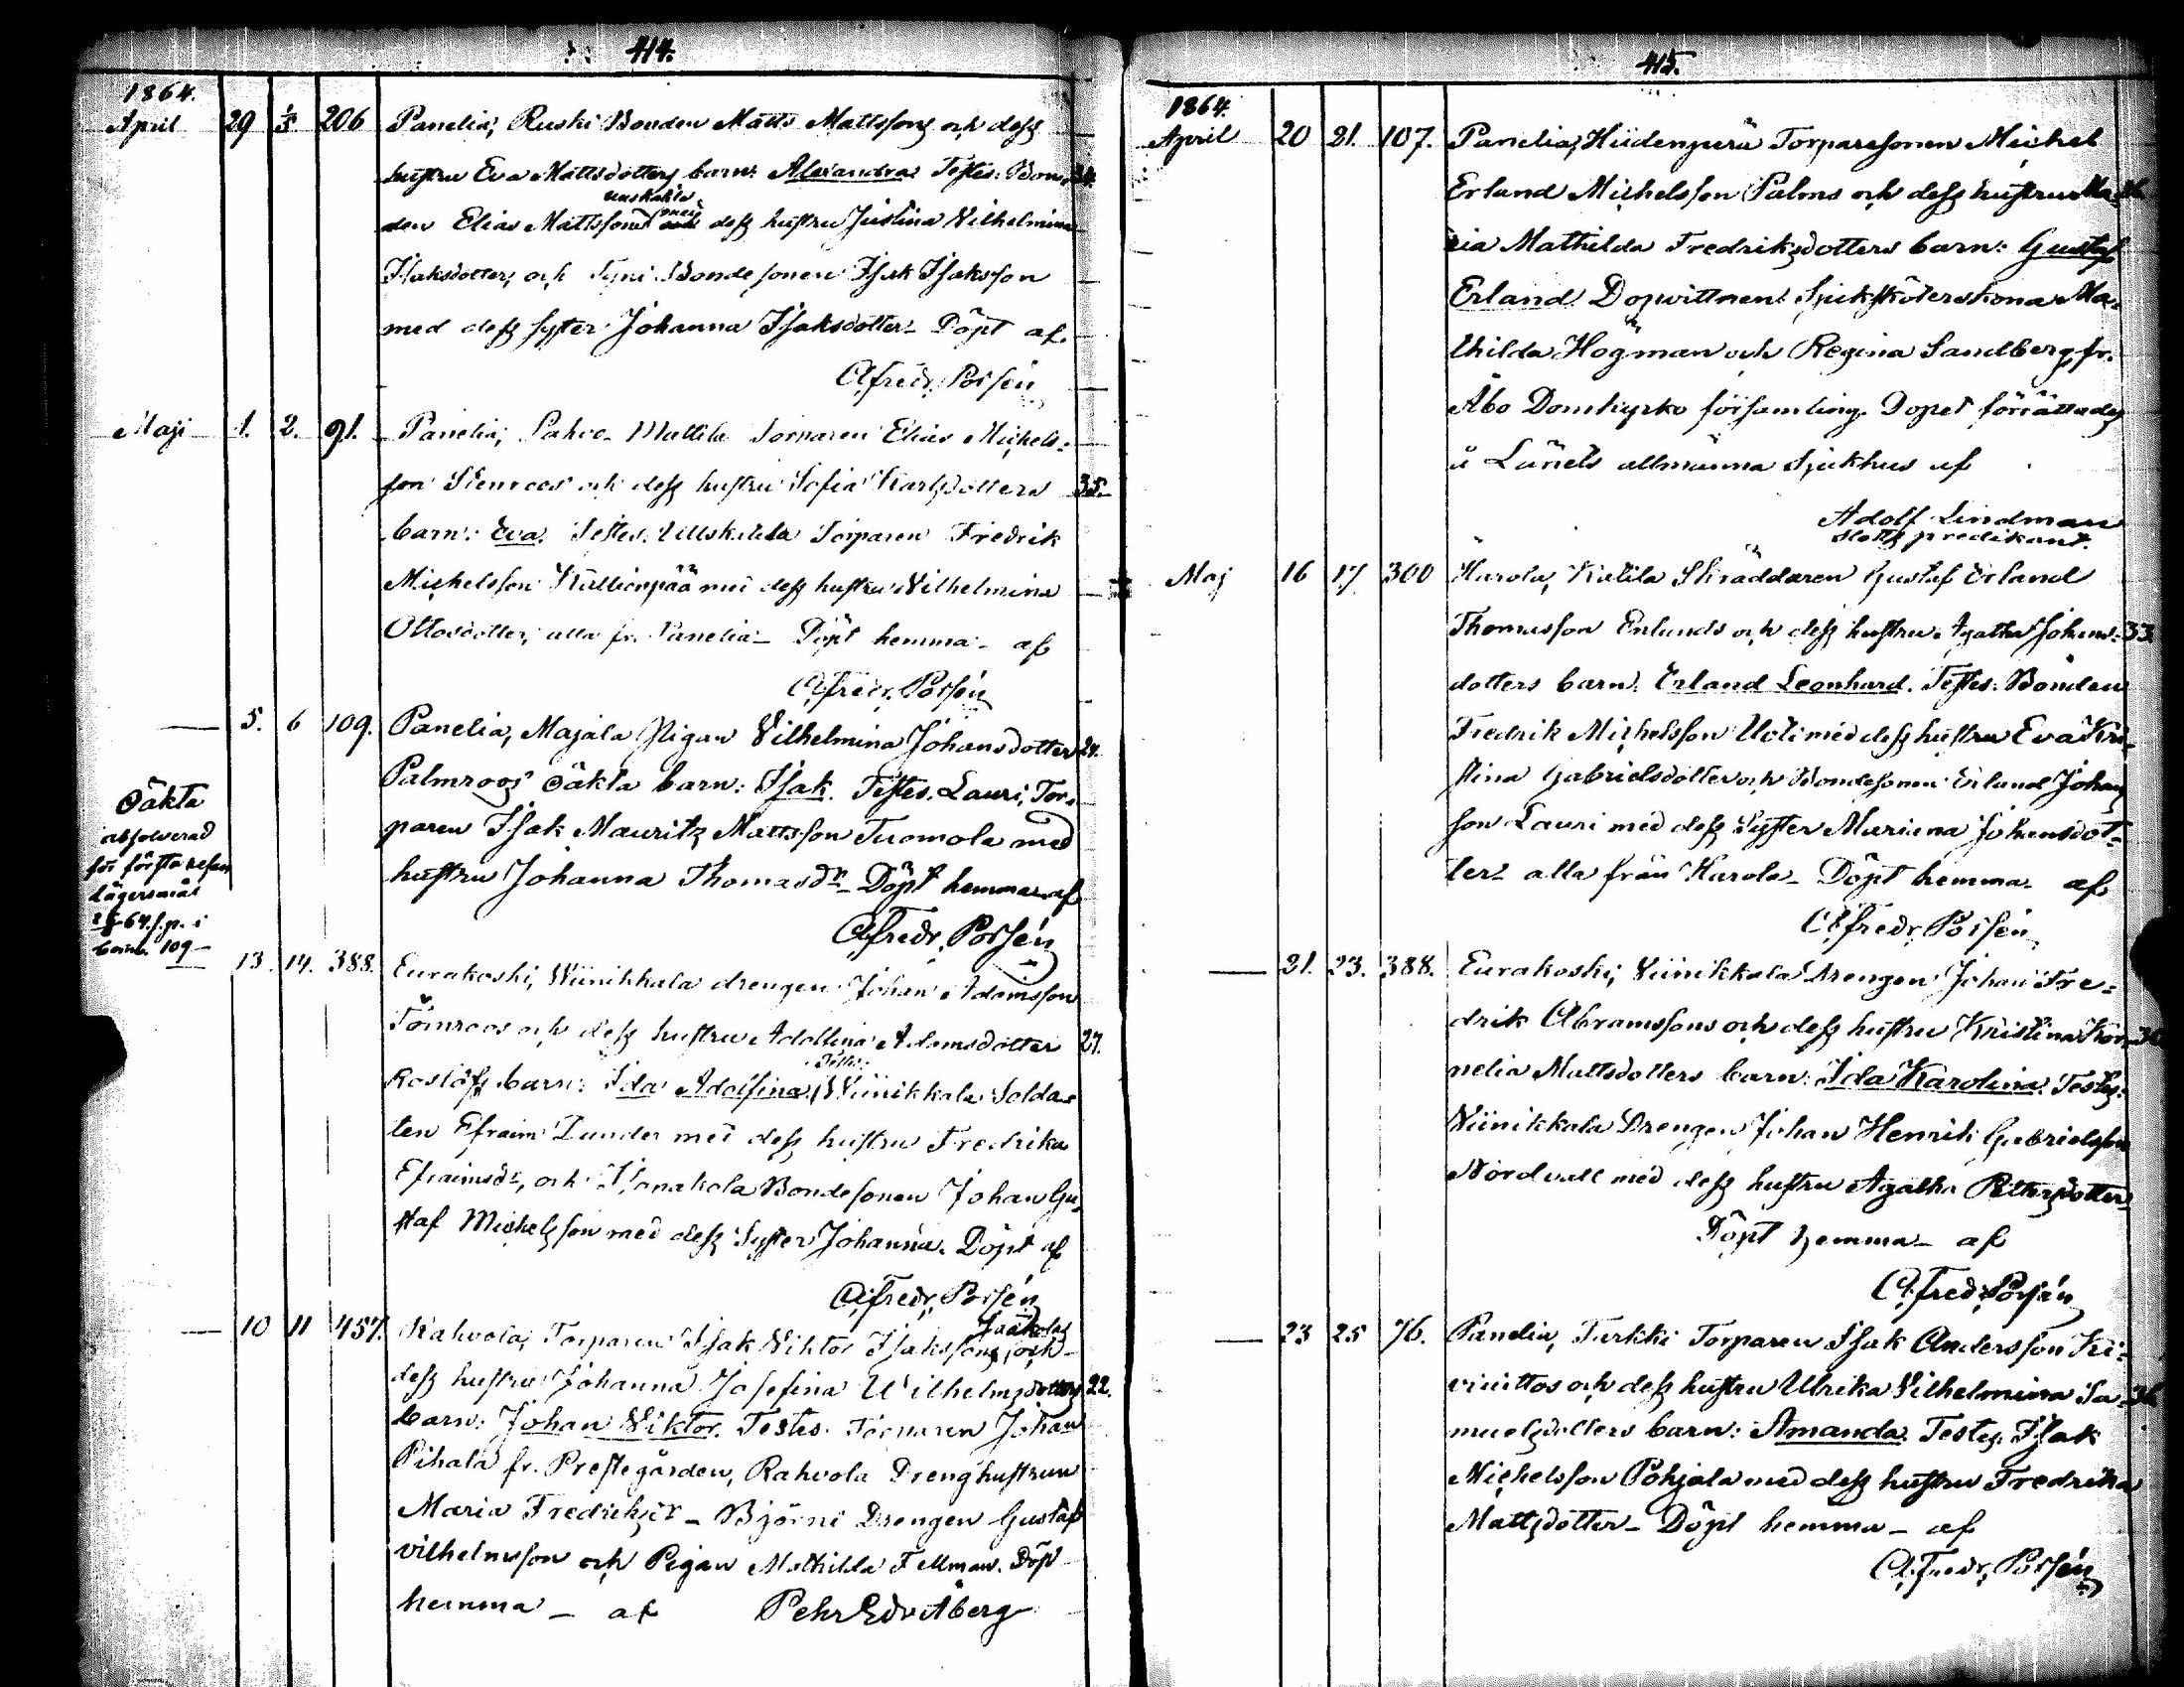 414.
1864.
April 29 1/5 206 Panelia, Ruski Bonden Matts Mattssons och dess
hustru Eva Mattsdotters barn: Alexandra. Testes: Bon- 34.
enskakla
den Elias Mattsson med dess hustru Justina Vilhelmina
Isaksdotter, och Bondesonen Isak Isaksson
med dess syster Johanna Isaksdotter. Döpt af.
A. Fredr. Porsén
Maji 1. 2. 91. Panelia, Mattila Torparen Elias Michels-
son Stenroos och dess hustru Sofia Karlsdotters 35.
barn: Eva. Testes: Torparen Fredrik
Michelsson Kalliopää med dess hustru Vilhelmina
Ottosdotter, alla fr. Panelia. Döpt hemma af
A. Fredr. Porsén
— 5. 6 109. Panelia, Majala Pigan Vilhelmina Johansdotter 24.
Palmroos oäkta barn: Isak. Testes. Lauri, Tor-
paren Isak Mauritz Mattsson Tuomola med
hustru Johanna Thomasdr. Döpt hemma af
A. Fredr. Porsén
Oäkta
absolverad
för första resan
lägersmål
64. s. p. i
barnb. 109
— 13. 14. 388. Eurakoski, Wiinikkala drengen Johan Adamsson
Törnroos och dess hustru Adolfina Adamsdotter 27.
Testes:
barn: Ida Adolfina. Wiinikkala Solda-
ten Efraim Zunder med dess hustru Fredrika
Efraimsdr, och Bondesonen Johan Gu-
staf Michelsson med dess syster Johanna. Döpt af
A. Fredr. Porsén
Jaakolas
— 10 11 457. Rahvola, Torparen Isak Viktor Isakssons och
dess hustru Johanna Josefina Wilhelmsdotters 22.
barn: Johan Viktor. Testes. Torparen Johan
Pihala fr. Prestegården, Rahvola Drenghustrun
Maria Fredriksdr — Björni Drengen Gustaf
Vilhelmsson och Pigan Mathilda Fellman. Döpt
hemma — af Pehr Edv Åberg
415.
1864.
April 20 21. 107. Panelia, Hiidenperä Torparesonen Michel
Erland Michelsson Palms och dess hustrus Ma- 26.
ria Mathilda Fredriksdotters barn: Gustaf
Erland. Dopvittnen: Sjuksköterskorna Ma-
thilda Högman och Regina Sandberg, fr.
Åbo Domkyrko församling. Dopet förrättades
å Länets allmänna Sjukhus af
Adolf Lindman
slotts predikant.
Maj 16 17 300 Harola, Katila Skräddaren Gustaf Erland
Thomasson Enlunds och dess hustru Agatha Johans- 33.
dotters barn: Erland Leonhard. Testes: Bonden
Fredrik Michelsson Uoti med dess hustru Eva Kri-
stina Gabrielsdotter och Bondesonen Erland Johans
son Lauri med dess Syster Mariana Johansdot-
ter — alla från Harola — Döpt hemma — af
A. Fredr. Porsén
— 21. 23. 388. Eurakoski, Viinikkala Drengen Johan Fre-
drik Abramssons och dess hustru Kristina Kor-
nelia Mattsdotters barn: Ida Karolina. Testes:
Viinikkala Drengen Johan Henrik Gabrielsson
Nordvall med dess hustru Agatha Pettersdotter
Döpt hemma — af
A. Fredr. Porsén
— 23 25 76. Panelia, Turkki Torparen Isak Andersson Ki-
vinittos och dess hustru Ulrika Vilhelmina Sa- 36.
muelsdotters barn: Amanda. Testes: Isak
Michelsson Pohjala med dess hustru Fredrika
Mattsdotter — Döpt hemma — af
A. Fredr. Porsén